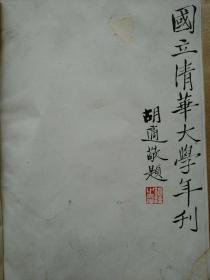 國立清華大學年刊
胡適敬題